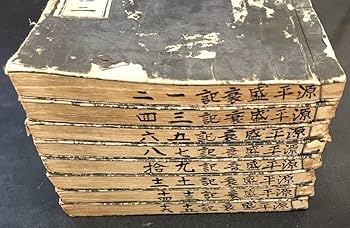 源平盛衰記一二
源平盛衰記三四
源平盛衰記五六
源平盛衰記七八
源平盛衰記九拾
源平盛衰記十一十二
源平盛衰記十三十四
源平盛衰記